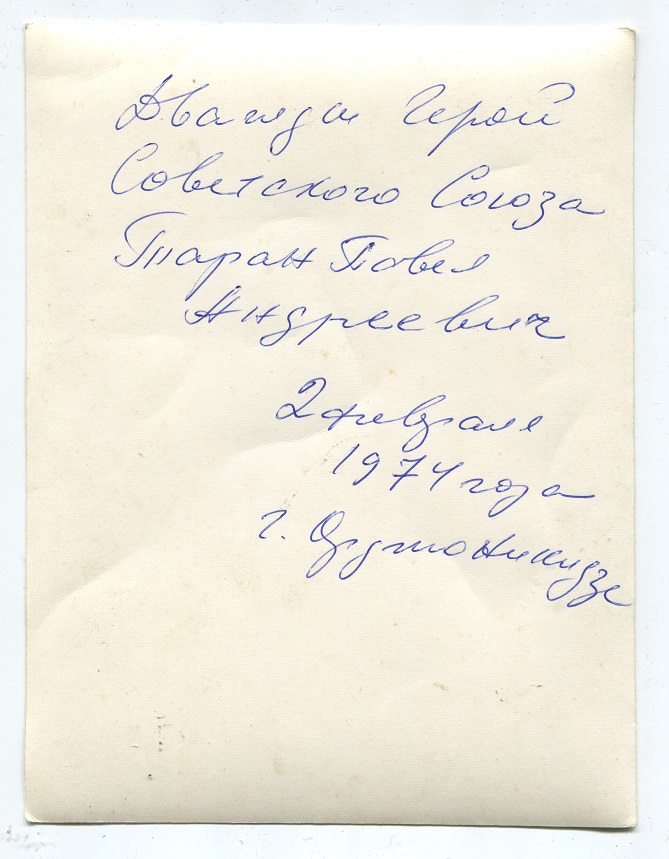 Дважды Герой
Советского Союза
Таран Павел
Андреевич
2 февраля
1974 года
г. Орджоникидзе